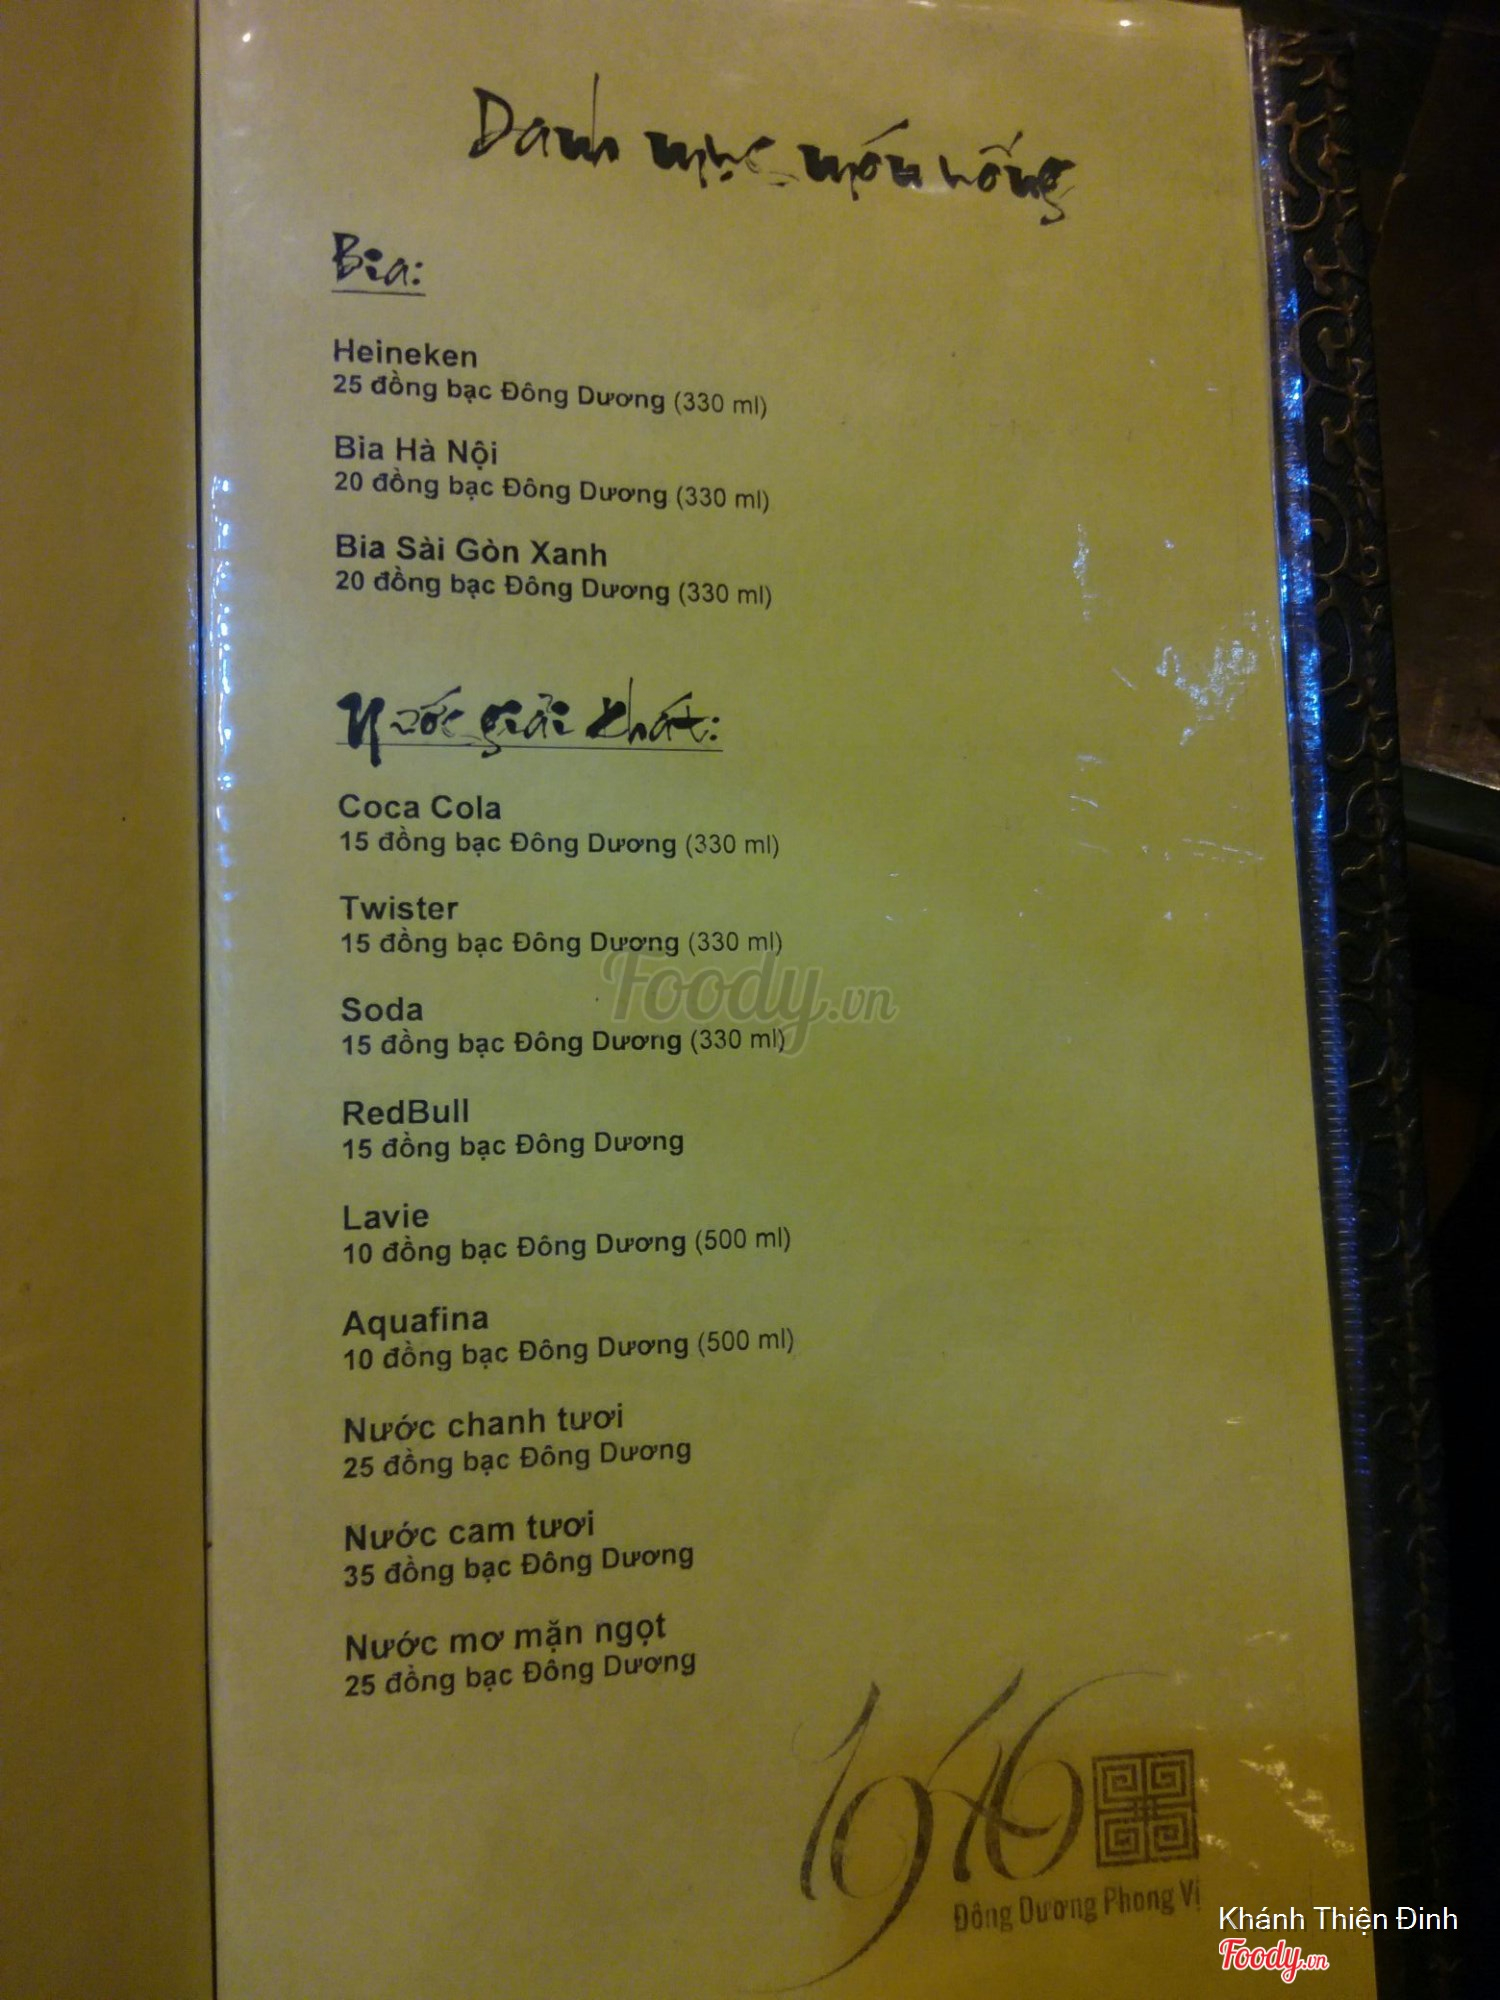 Danh mục món uống
Bia:
Heineken
25 đồng bạc Đông Dương (330 ml)
Bia Hà Nội
20 đồng bạc Đông Dương (330 ml)
Bia Sài Gòn Xanh
20 đồng bạc Đông Dương (330 ml)
Nước giải khát:
Coca Cola
15 đồng bạc Đông Dương (330 ml)
Twister
15 đồng bạc Đông Dương (330 ml)
Foody.vn
Soda
15 đồng bạc Đông Dương (330 ml)
RedBull
15 đồng bạc Đông Dương
Lavie
10 đồng bạc Đông Dương (500 ml)
Aquafina
10 đồng bạc Đông Dương (500 ml)
Nước chanh tươi
25 đồng bạc Đông Dương
Nước cam tươi
35 đồng bạc Đông Dương
Nước mơ mặn ngọt
25 đồng bạc Đông Dương
1946
Đông Dương Phong Vị
Khánh Thiện Đinh
Foody.vn